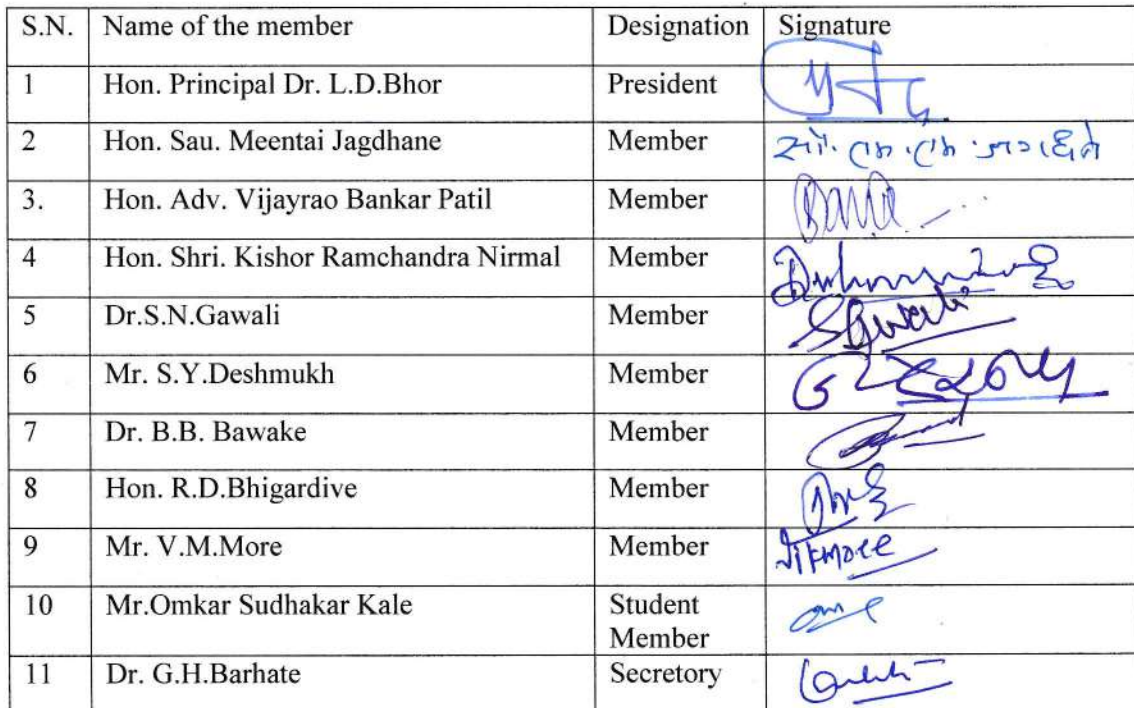 S.N. Name of the member Designation Signature
1 Hon. Principal Dr. L.D.Bhor President
2 Hon. Sau. Meentai Jagdhane Member
3. Hon. Adv. Vijayrao Bankar Patil Member
4 Hon. Shri. Kishor Ramchandra Nirmal Member
5 Dr.S.N.Gawali Member SGwali
6 Mr. S.Y.Deshmukh Member
7 Dr. B.B. Bawake Member
8 Hon. R.D.Bhigardive Member
9 Mr. V.M.More Member
10 Mr.Omkar Sudhakar Kale Student
Member
11 Dr. G.H.Barhate Secretory